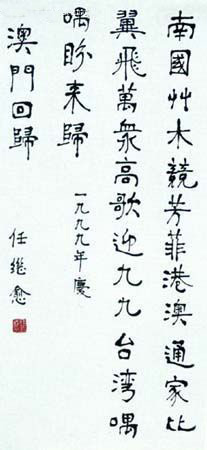 南國艸木競芳菲港澳通家比
翼飛萬衆高歌迎九九台湾喁
喁盼来歸
一九九九年慶
澳門回歸
任继愈